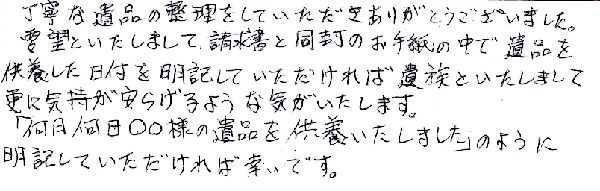 丁寧な遺品の整理をしていただきありがとうございました。
要望といたしまして、請求書と同封のお手紙の中で遺品を
供養した日付を明記していただければ遺族といたしまして
更に気持が安らげるような気がいたします。
「何月何日〇〇様の遺品を供養いたしました」のように
明記していただければ幸いです。